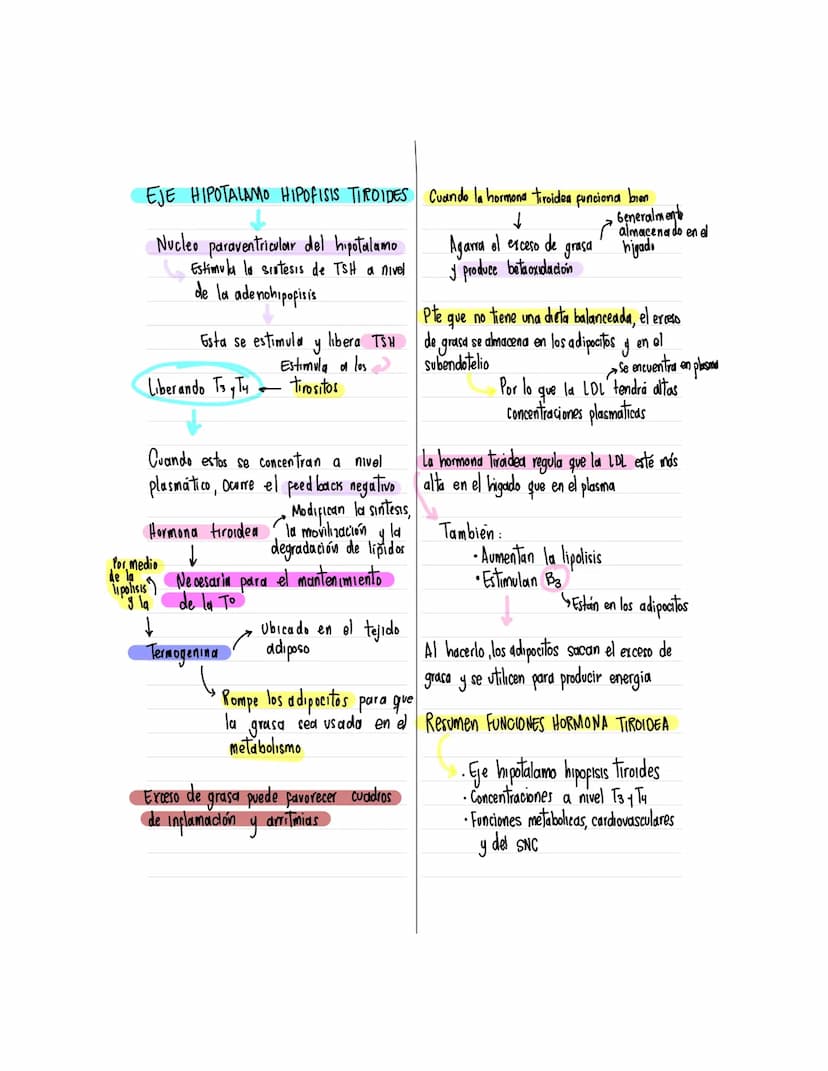 EJE HIPOTALAMO HIPOFISIS TIROIDES
Nucleo paraventricular del hipotalamo
Estimula la sintesis de TSH a nivel
de la adenohipofisis
Esta se estimula y libera TSH
Estimula a los
tirositos
Liberando T3 y T4
Cuando estos se concentran a nivel
plasmático, ocurre el feedback negativo
Hormona tiroidea
Modifican la sintesis,
la movilización y la
degradación de lípidos
Por medio
de la
lipolisis
y la
Necesaria para el mantenimiento
de la T°
Termogenina
Ubicado en el tejido
adiposo
Rompe los adipocitos para que
la grasa sea usado en el
metabolismo
Exceso de grasa puede favorecer cuadros
de inflamación y arritmias
Cuando la hormona tiroidea funciona bien
Generalmente
almacenado en el
higado
Agarra el exceso de grasa
y produce betaoxidación
Pte que no tiene una dieta balanceada, el exceso
de grasa se almacena en los adipocitos y en el
subendotelio
Se encuentra en plasma
Por lo que la LDL tendrá altas
concentraciones plasmáticas
La hormona tiroidea regula que la LDL esté más
alta en el higado que en el plasma
También:
• Aumentan la lipolisis
• Estimulan B3
Están en los adipocitos
Al hacerlo, los adipocitos sacan el exceso de
grasa y se utilicen para producir energia
Resumen FUNCIONES HORMONA TIROIDEA
• Eje hipotalamo hipofisis tiroides
• Concentraciones a nivel T3 y T4
• Funciones metabolicas, cardiovasculares
y del SNC